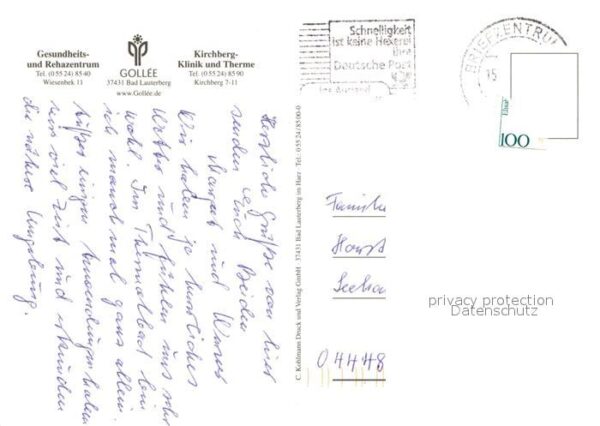 Gesundheits-
und Rehazentrum
Tel. (0 55 24) 85 40
Wiesenbek 11
GOLLÉE
37431 Bad Lauterberg
www.Gollée.de
Kirchberg-
Klinik und Therme
Tel. (0 55 24) 85 90
Kirchberg 7-11
Herzliche Grüße von hier
senden Euch Beiden
Margret und Werner
Wir haben ja herrliches
Wetter und fühlen uns sehr
wohl. Im Thermalbad bin
ich manchmal ganz allein.
Außer einigen Anwendungen haben
wir viel Zeit und erkunden
die nähere Umgebung.
C. Kohlmann Druck und Verlag GmbH · 37431 Bad Lauterberg im Harz · Tel.: (0 55 24) 85 00-0
Schnelligkeit
ist keine Hexerei
Ihre
Deutsche Post
BRIEFZENTRUM
15
100
Familie
Horst
04448
privacy protection
Datenschutz